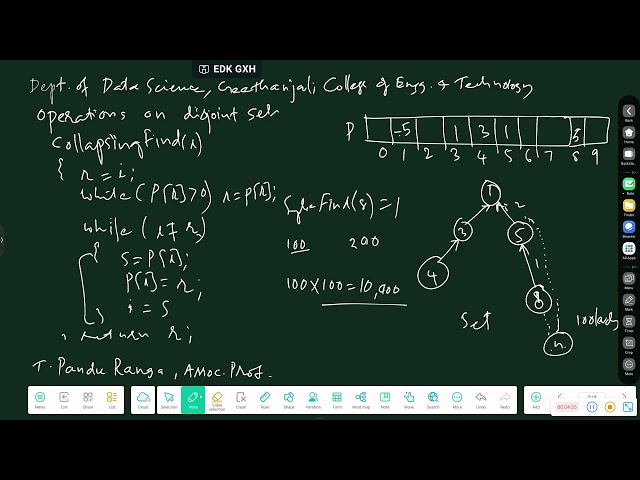 EDK GXH
Dept. of Data Science, Geethanjali College of Engg. & Technology
operations on disjoint sets
Collapsing Find(i)
{ r = i;
while (P[r]>0) r = p[r];
while (i≠r)
{
s = P[i];
P[i] = r;
i = s
}
return r;
T. Pandu Ranga, Assoc. Prof.
P
-5 1 3 1 5
0 1 2 3 4 5 6 7 8 9
Simple Find(8) = 1
100 200
100×100 = 10,000
1
2
3 5
4
1
8
n
Set
Menu Exit Share List Cloud Selection Write Erase selection Clean Ruler Shape Partition Form Mind map More Undo Redo Add
00:04:25
Back
Note
Finder
Browser
All Apps
Menu
Timer
Crop
More